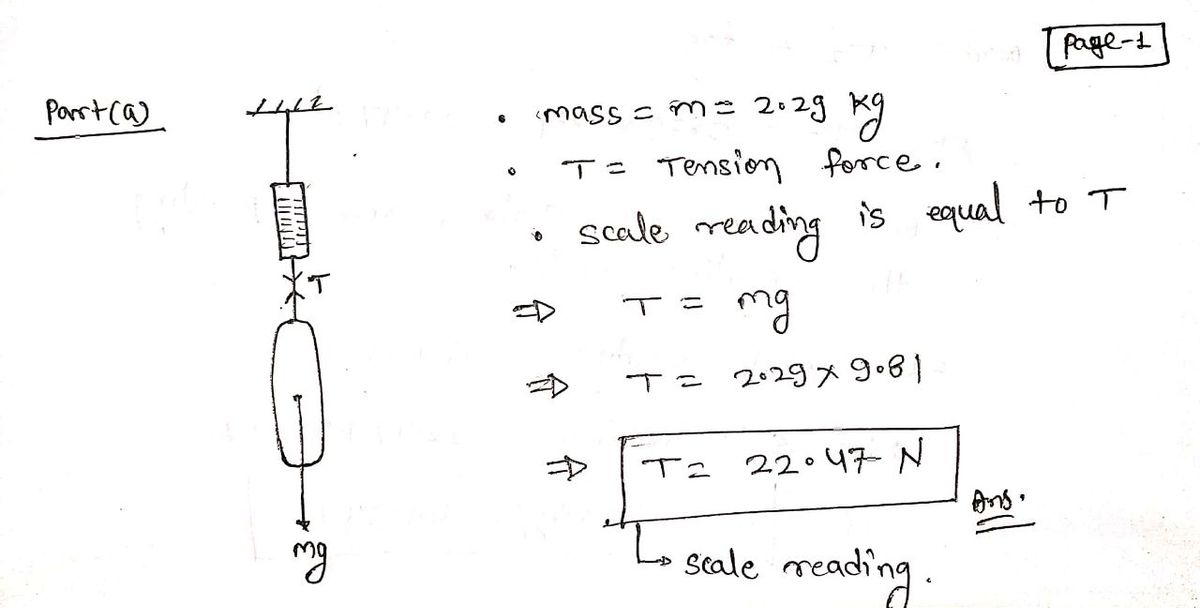 Page-1
Part(a)
• mass = m = 2.29 kg
• T = Tension force.
• scale reading is equal to T
⇒ T = mg
⇒ T = 2.29 × 9.81
⇒ T = 22.47 N
Ans.
↳ scale reading.
T
mg